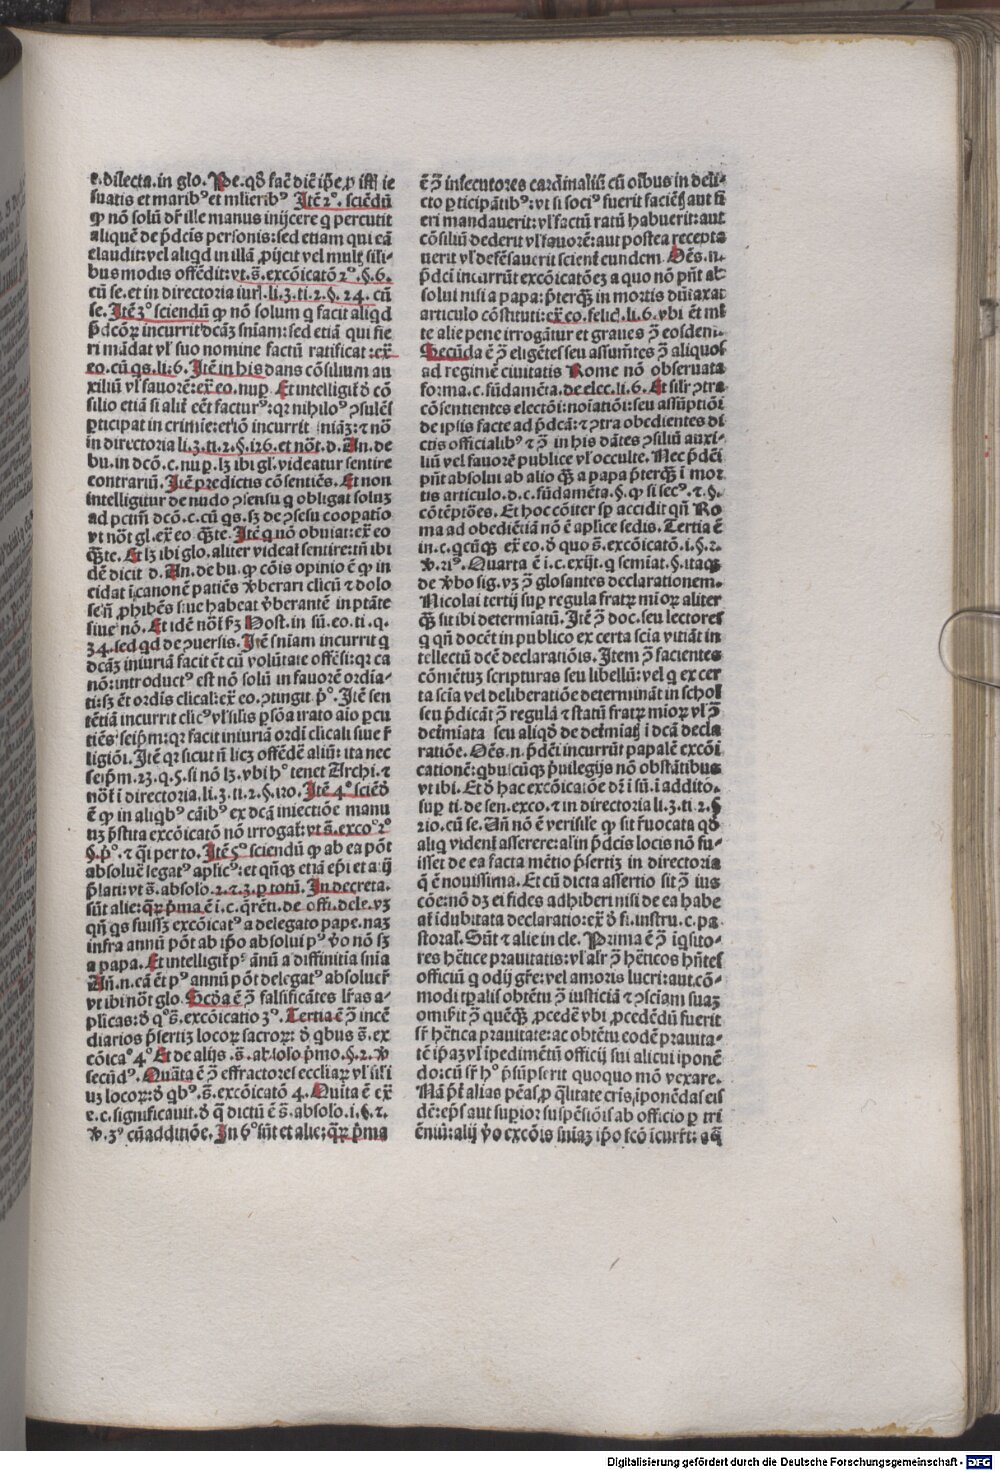 e. dilecta. in glo. Pe. qđ facē diē ip̄e ꝓ iſſꝭ ie
ſuatis et maribꝰ et mlieribꝰ Itē 2º. ſciendū
ꝙ nō ſolū dꝛ̄ ille manus inijcere q percutit
aliquē de p̄dcīs perſonis: ſed etiam qui eā
claudit: vel aliqđ in illā ꝓijcit vel multꝭ ſili-
bus modis offēdit: vt. s̄. excōicatō 2º. §. 6.
cū ſe. et in directoria iurꝭ. li. 3. ti. 2. §. 24. cū
ſe. Itē 3º ſciendū ꝙ nō ſolum q facit aliqđ
p̄dcōꝝ incurrit dcāꝫ sn̄iam: ſed etiā qui fie
ri mādat vꝉ ſuo nomine factū ratificat: ex̄
eo. cū qs. li. 6. Itē in his dans cōſilium au
xiliū vꝉ fauorē: ex̄ eo. nuꝑ. Et intelligit̄ đ cō
ſilio etiā ſi alit̄ eēt facturꝰ: qꝛ nihiloꝰ ꝯſulēs
ꝑticipat in crimīe: et iō incurrit sn̄iāꝫ: ⁊ nō
in directoria li. 3. ti. 2. §. 126. et nōt̄. d. An. de
bu. in dcō. c. nuꝑ. lꝫ ibi gl. videatur ſentire
contrariū. Itē predictis cōſentiēs. Et non
intelligitur de nudo ꝯſenſu q obligat ſoluꝫ
ad pctm̄ dcō. c. cū qs. ſꝫ de ꝯſeſu cooꝑatio
vt nōt̄ gl. ex̄ eo q̄ꝫte. Itē q nō obuiat: ex̄ eo
q̄ꝫte. Et lꝫ ibi glo. aliter videat̄ ſentire: tn̄ ibi
dē dicit d. An. de bu. ꝙ cōis opinio ē ꝙ in
cidat ī canonē patiēs v̄berari clicū ⁊ dolo
ſe n̄ ꝓhibēs ſiue habeat v̄berantē in ptāte
ſiue nō. Et idē nōt̄ fꝫ Hoſt. in ſū. eo. ti. q.
34. ſed qđ de ꝯuerſis. Itē sn̄iam incurrit q
dcāꝫ iniuriā facit ēt cū volūtate offēſi: qꝛ ca
nō: introductꝰ eſt nō ſolū in fauorē ordia-
ti: ſꝫ ēt ordīs clical: ex̄ eo. ꝯtingit p̄º. Itē ſen
tētiā incurrit clicꝰ vꝉ ſilis ꝑſōa irato aīo ꝑcu
tiēs ſeip̄m: qꝛ facit iniuriā ordī clicali ſiue r̄
ligiōi. Itē qꝛ ſicut n̄ licꝫ offēdē aliū: ita nec
ſeip̄m. 23. q. 5. ſi nō lꝫ. vbi hº tenet Archi. ⁊
nōt̄ ī directoria. li. 3. ti. 2. §. 120. Itē 4º ſciēđ
ē ꝙ in aliqbꝰ cāibꝰ ex dcā iniectiōe manu
uꝫ p̄ſtita excōicatō nō irrogat̄: vt s̄. excoº 2º
§. p̄º. ⁊ q̄i ꝑ to. Itē 5º ſciendū ꝙ ab ea pōt
abſoluē legatꝰ aplicꝰ: et qn̄qꝫ etiā ep̄i et a ij
p̄lati: vt s̄. abſolo. 2. ⁊ 3. ꝑ totū. In decreta.
ſūt alie: q̄ꝝ p̄ma ē i. c. q̄rēti. de offi. dele. vꝫ
qn̄ qs fuiſſꝫ excōicatꝰ a delegato pape. naꝫ
infra annū pōt ab ip̄o abſolui pꝰ v̄o nō ſꝫ
a papa. Et intelligit̄ pꝰ ānū a diffinitia sn̄ia
Añ. n. cā ēt pꝰ annū pōt delegatꝰ abſoluer̄
vt ibi nōt̄ glo. Scđa ē ꝯ̄ falſificātes lr̄as a-
plicas: đ qº s̄. excōicatio 3º. Tertia ē ꝯ̄ incē
diarios p̄ſertiꝫ locoꝝ ſacroꝝ: đ qbus s̄. ex
cōicaº 4º Et de alijs. s̄. abſolo p̄mo. §. 2. v̄
ſecūdꝰ. Quāta ē ꝯ̄ effractores eccliaꝝ vꝉ ſiꝉi
uꝫ locoꝝ: đ qbꝰ. s̄. excōicatō 4. Quīta ē ex̄
e. c. ſignificauit. đ q̄ dictū ē s̄. abſolo. i. §. 2.
v̄. 3º cū additiōe. In 6º ſūt et alie: q̄ꝝ p̄ma
ē ꝯ̄ inſecutores cardinaliū cū oībus in deli-
cto ꝑticipātibꝰ: vt ſi ſociꝰ fuerit faciētꝭ aut fi
eri mandauerit: vꝉ factū ratū habuerit: aut
cōſiliū dederit vꝉ fauorē: aut poſtea recepta
uerit vꝉ defēſauerit ſcient̄ eundem. Oēs. n.
p̄dci incurrūt excōicatōeꝫ a quo nō pn̄t ab
ſolui niſi a papa: p̄terq̄ꝫ in mortis dūtaxat
articulo cōſtituti: ex̄ eo. felicꝭ. li. 6. vbi ēt ml
te alie pene irrogātur et graues ꝯ̄ eoſdem.
Secūda ē ꝯ̄ eligētes ſeu aſſum̄tes ꝯ̄ aliquos
ad regimē ciuitatis Rome nō obſeruata
forma. c. fūdamēta. de elec. li. 6. Et ſilr̄ ꝯtra
cōſentientes electōi: noīatiōi: ſeu aſſūptiōi
de ipſis facte ad p̄dcā: ⁊ ꝯtra obedientes di
ctis officialibꝰ ⁊ ꝯ̄ in his dātes ꝯſiliū auxi-
liū vel fauorē publice vꝉ occulte. Nec p̄dcī
pn̄t abſolui ab alio q̄ꝫ a papa p̄terq̄ꝫ ī mor
tis articulo. d. c. fūdamēta. §. ꝙ ſi ſecꝰ. ⁊. §.
cōtēptōes. Et hoc cōiter ſꝑ accidit qn̄ Ro
ma ad obediētiā nō ē aplice ſedis. Tertia ē
in. c. qcūqꝫ ex̄ eo. đ quo s̄. excōicatō. i. §. 2.
v̄. 21º. Quarta ē i. c. exijt. q ſemiat. §. itaqꝫ
de v̄bo ſig. vꝫ ꝯ̄ gloſantes declarationem.
Nicolai tertij ſuꝑ regula fratꝝ mīoꝝ aliter
q̄ꝫ ſit ibi determiatū. Itē ꝯ̄ doc. ſeu lectores
q qn̄ docēt in publico ex certa ſcīa vitiāt in
tellectū dcē declaratiōis. Item ꝯ̄ facientes
cōmētuꝫ ſcripturas ſeu libellū: vel q ex cer
ta ſcīa vel deliberatiōe determināt in ſcholꝭ
ſeu p̄dicāt ꝯ̄ regulā ⁊ ſtatū fratꝝ mioꝝ vꝉ ꝯ̄
det̄miata ſeu aliqđ de det̄miatꝭ ī dcā decla
ratiōe. Oēs. n. p̄dcī incurrūt papalē excōi
cationē: qbuſcūqꝫ p̄uilegijs nō obſtātibus
vt ibi. Et đ hac excōicatōe dꝛ̄ ī ſū. ī additō.
ſuꝑ ti. de ſen. exco. ⁊ in directoria li. 3. ti. 2. §
210. cū ſe. Añ nō ē veriſile ꝙ ſit r̄uocata qđ
aliq vident̄ aſſerere: alīn p̄dcis locis nō fu-
iſſet de ea facta mētio p̄ſertiꝫ in directoria
q̄ ē nouiſſima. Et cū dicta aſſertio ſit ꝯ̄ ius
cōe: nō dꝫ ei fides adhiberi niſi de ea habe
at̄ īdubitata declaratio: ex̄ đ fi. inſtru. c. pa
ſtoral. Sūt ⁊ alie in cle. Prima ē ꝯ̄ īqſito-
res hētice prauitatis: vꝉ alr̄ ꝯ̄ hēticos hn̄tes
officiū q odij gr̄e: vel amoris lucri: aut cō-
modi tꝑalis obtētu ꝯ̄ iuſticiā ⁊ ꝯſciam ſuaꝫ
omiſit ꝯ̄ quēqꝫ ꝓcedē vbi ꝓcedēdū fuerit
ſr̄ hētica prauitate: ac obtētu eodē prauita-
tē ip̄aꝫ vꝉ īpedimētū officij ſui alicui īponē
do: cū ſr̄ hº p̄ſūpſerit quoquo mō vexare.
Nā p̄ter alias pēas ꝓ q̄litate cr̄is, īponēdas eis
dē: ep̄s aut ſuꝑior ſuſpēſiōis ab officio ꝑ tri
ēniū: alij v̄o excōis sn̄iaꝫ ip̄o fcō icurr̄t: a q̄
Digitalisierung gefördert durch die Deutsche Forschungsgemeinschaft - DFG